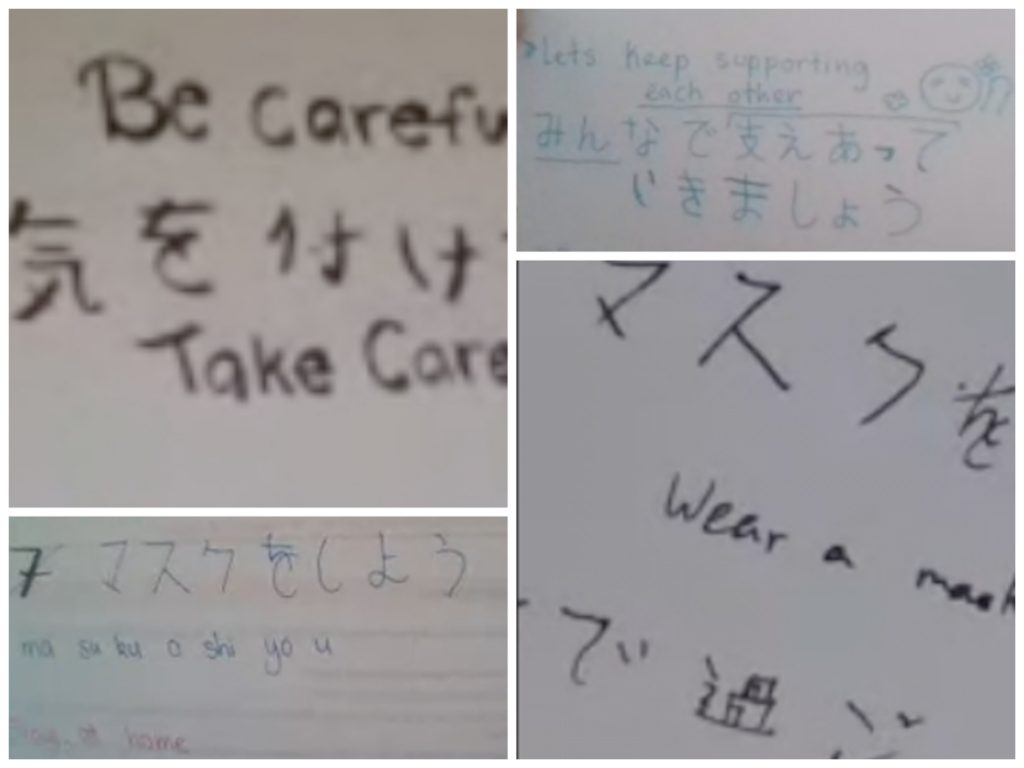 Be Carefu
気を付け
Take Care
Lets keep supporting
each other
みんなで支えあって
いきましょう
マスクをしよう
ma su ku o shi yo u
Stay at home
マスクを
Wear a mask
で過ご